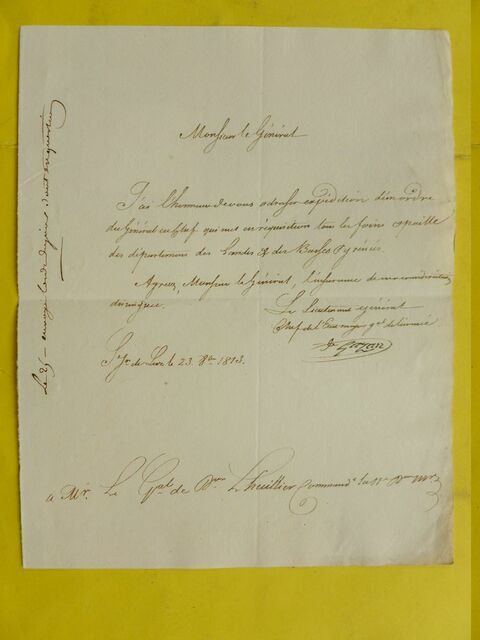 Monsieur le Général
J'ai l'honneur de vous adresser expédition d'un ordre
du Général en Chef qui met en réquisition tous les foins et paille
des départemens des Landes & des Basses Pyrénées.
Agréez, Monsieur le Général, l'assurance de ma considération
distinguée.
Le Lieutenant Général
Chef de l'Etat major gal de l'armée
Gazan
St Jn de Luz le 23 8bre 1813.
a Mr. Le Gal de Don L'huillier Command. la 11e Don Mre
Le 25 envoyé